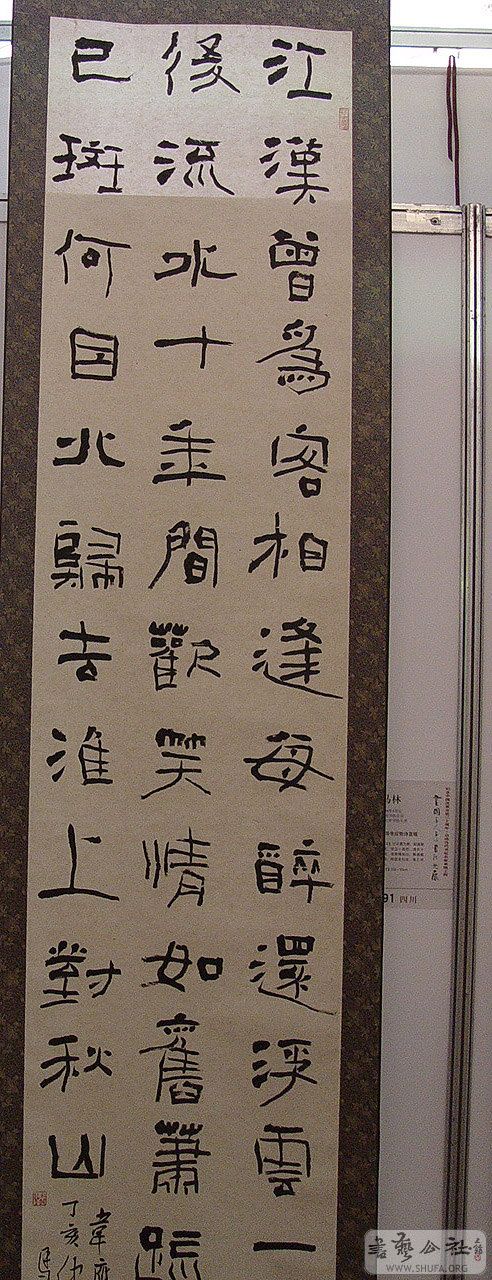 江漢曾爲客相逢每醉還浮雲一
後流水十年間歡笑情如舊蕭疏
已斑何因北歸去淮上對秋山
韋應
丁亥仲
馬
林
91 四川
書藝公社
WWW.SHUFA.ORG